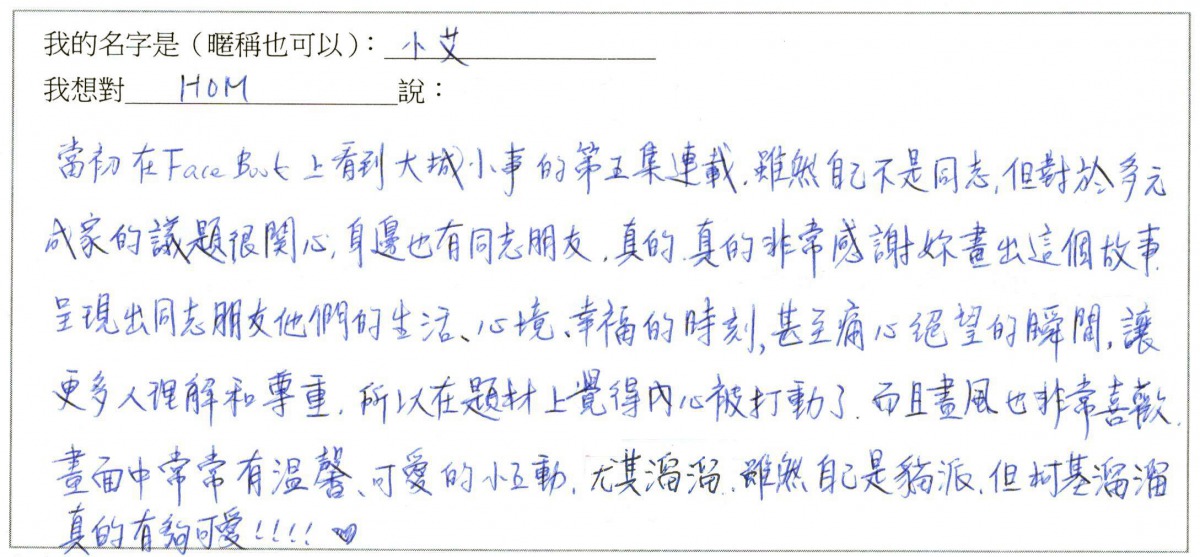 我的名字是（暱稱也可以）：小艾
我想對 HOM 說：
當初在FaceBook上看到大城小事的第五集連載,雖然自己不是同志,但對於多元
成家的議題很關心,身邊也有同志朋友,真的,真的非常感謝妳畫出這個故事
呈現出同志朋友他們的生活、心境、幸福的時刻,甚至痛心絕望的瞬間,讓
更多人理解和尊重,所以在題材上覺得內心被打動了,而且畫風也非常喜歡,
畫面中常常有溫馨、可愛的小互動,尤其溜溜,雖然自己是貓派,但柯基溜溜
真的有夠可愛!!!! ♡